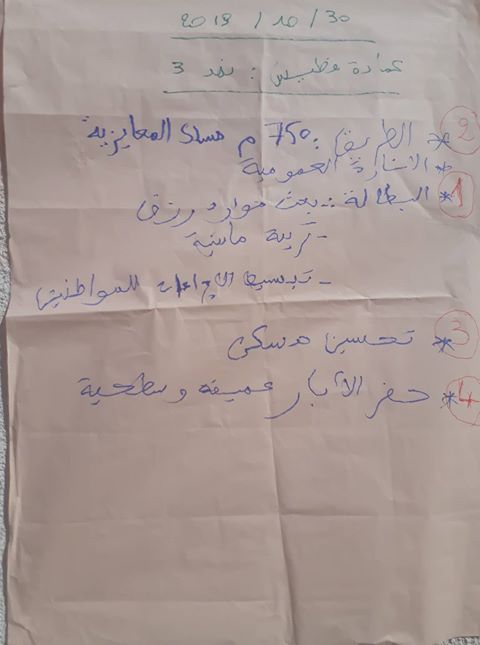 2019 / 10 / 30
عمادة : عدد 3
② * الطريق : 750 م مسلك المعايزية
* الانارة العمومية
① * البطالة : بعث موارد رزق
- تربية ماشية
- تبسيط الاجراءات للمواطنين
③ * تحسين مسكن
④ * حفر الآبار عميقة وسطحية